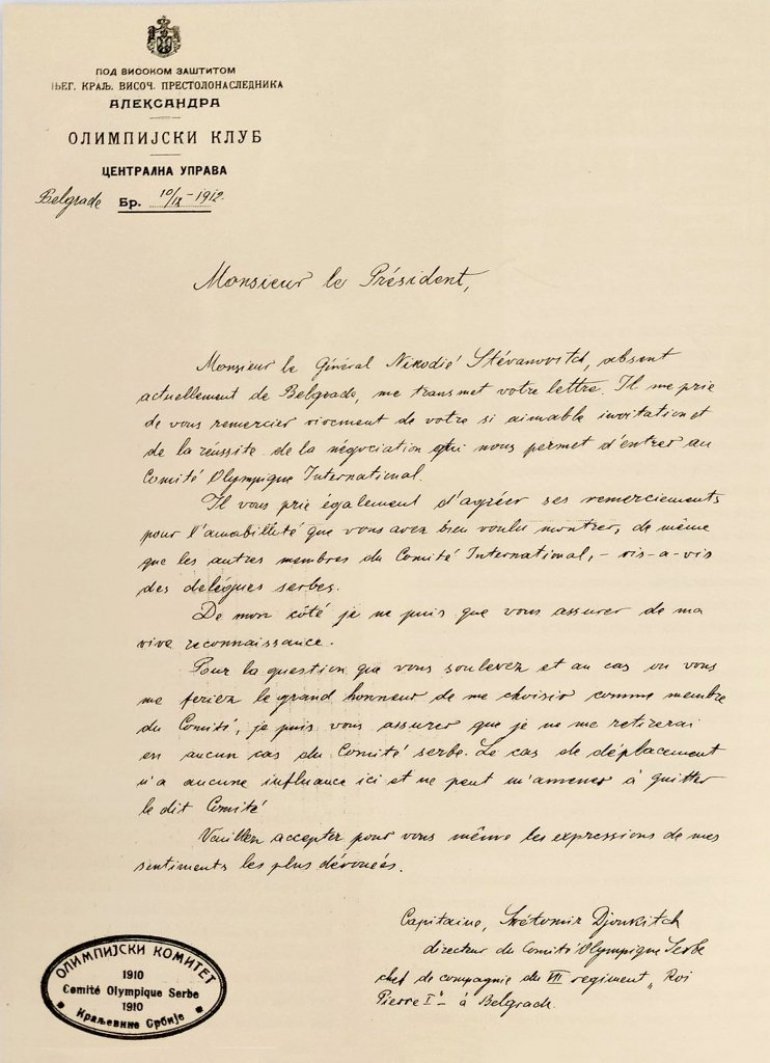 ПОД ВИСОКОМ ЗАШТИТОМ
ЊЕГ. КРАЉ. ВИСОЧ. ПРЕСТОЛОНАСЛЕДНИКА
АЛЕКСАНДРА
ОЛИМПИЈСКИ КЛУБ
ЦЕНТРАЛНА УПРАВА
Belgrade Бр. 10/IX-1912.
Monsieur le Président,
Monsieur le Général Nikodié Stévanovitch, absent
actuellement de Belgrade, me transmet votre lettre. Il me prie
de vous remercier vivement de votre si aimable invitation et
de la réussite de la négociation qui nous permet d'entrer au
Comité Olympique International.
Il vous prie également d'agréer ses remerciements
pour l'amabilité que vous avez bien voulu montrer, de même
que les autres membres du Comité International, - vis-a-vis
des delégues serbes.
De mon côté je ne puis que vous assurer de ma
vive reconnaissance.
Pour la question que vous soulevez et au cas ou vous
me feriez le grand honneur de me choisir comme membre
du Comité, je puis vous assurer que je ne me retirerai
en aucun cas du Comité serbe. Le cas de déplacement
n'a aucune influance ici et ne peut m'amener à quitter
le dit Comité
Veuillez accepter pour vous même les expressions de mes
sentiments les plus dévouées.
Capitaine, Svétomir Djoukitch
directeur du Comité Olympique Serbe
chef de compagnie du VII regiment „Roi
Pierre I" - à Belgrade.
ОЛИМПИЈСКИ КОМИТЕТ
1910
Comité Olympique Serbe
1910
Краљевине Србије